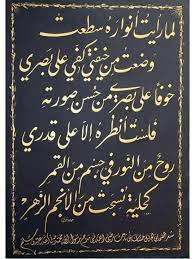 لما رأيت أنواره سطعت
وضعت من خيفتي كفي على بصري
خوفا على بصري من حسن صورته
فلست أنظره إلا على قدري
روح من النور في جسم من القمر
كحلية نسجت من الأنجم الزهر